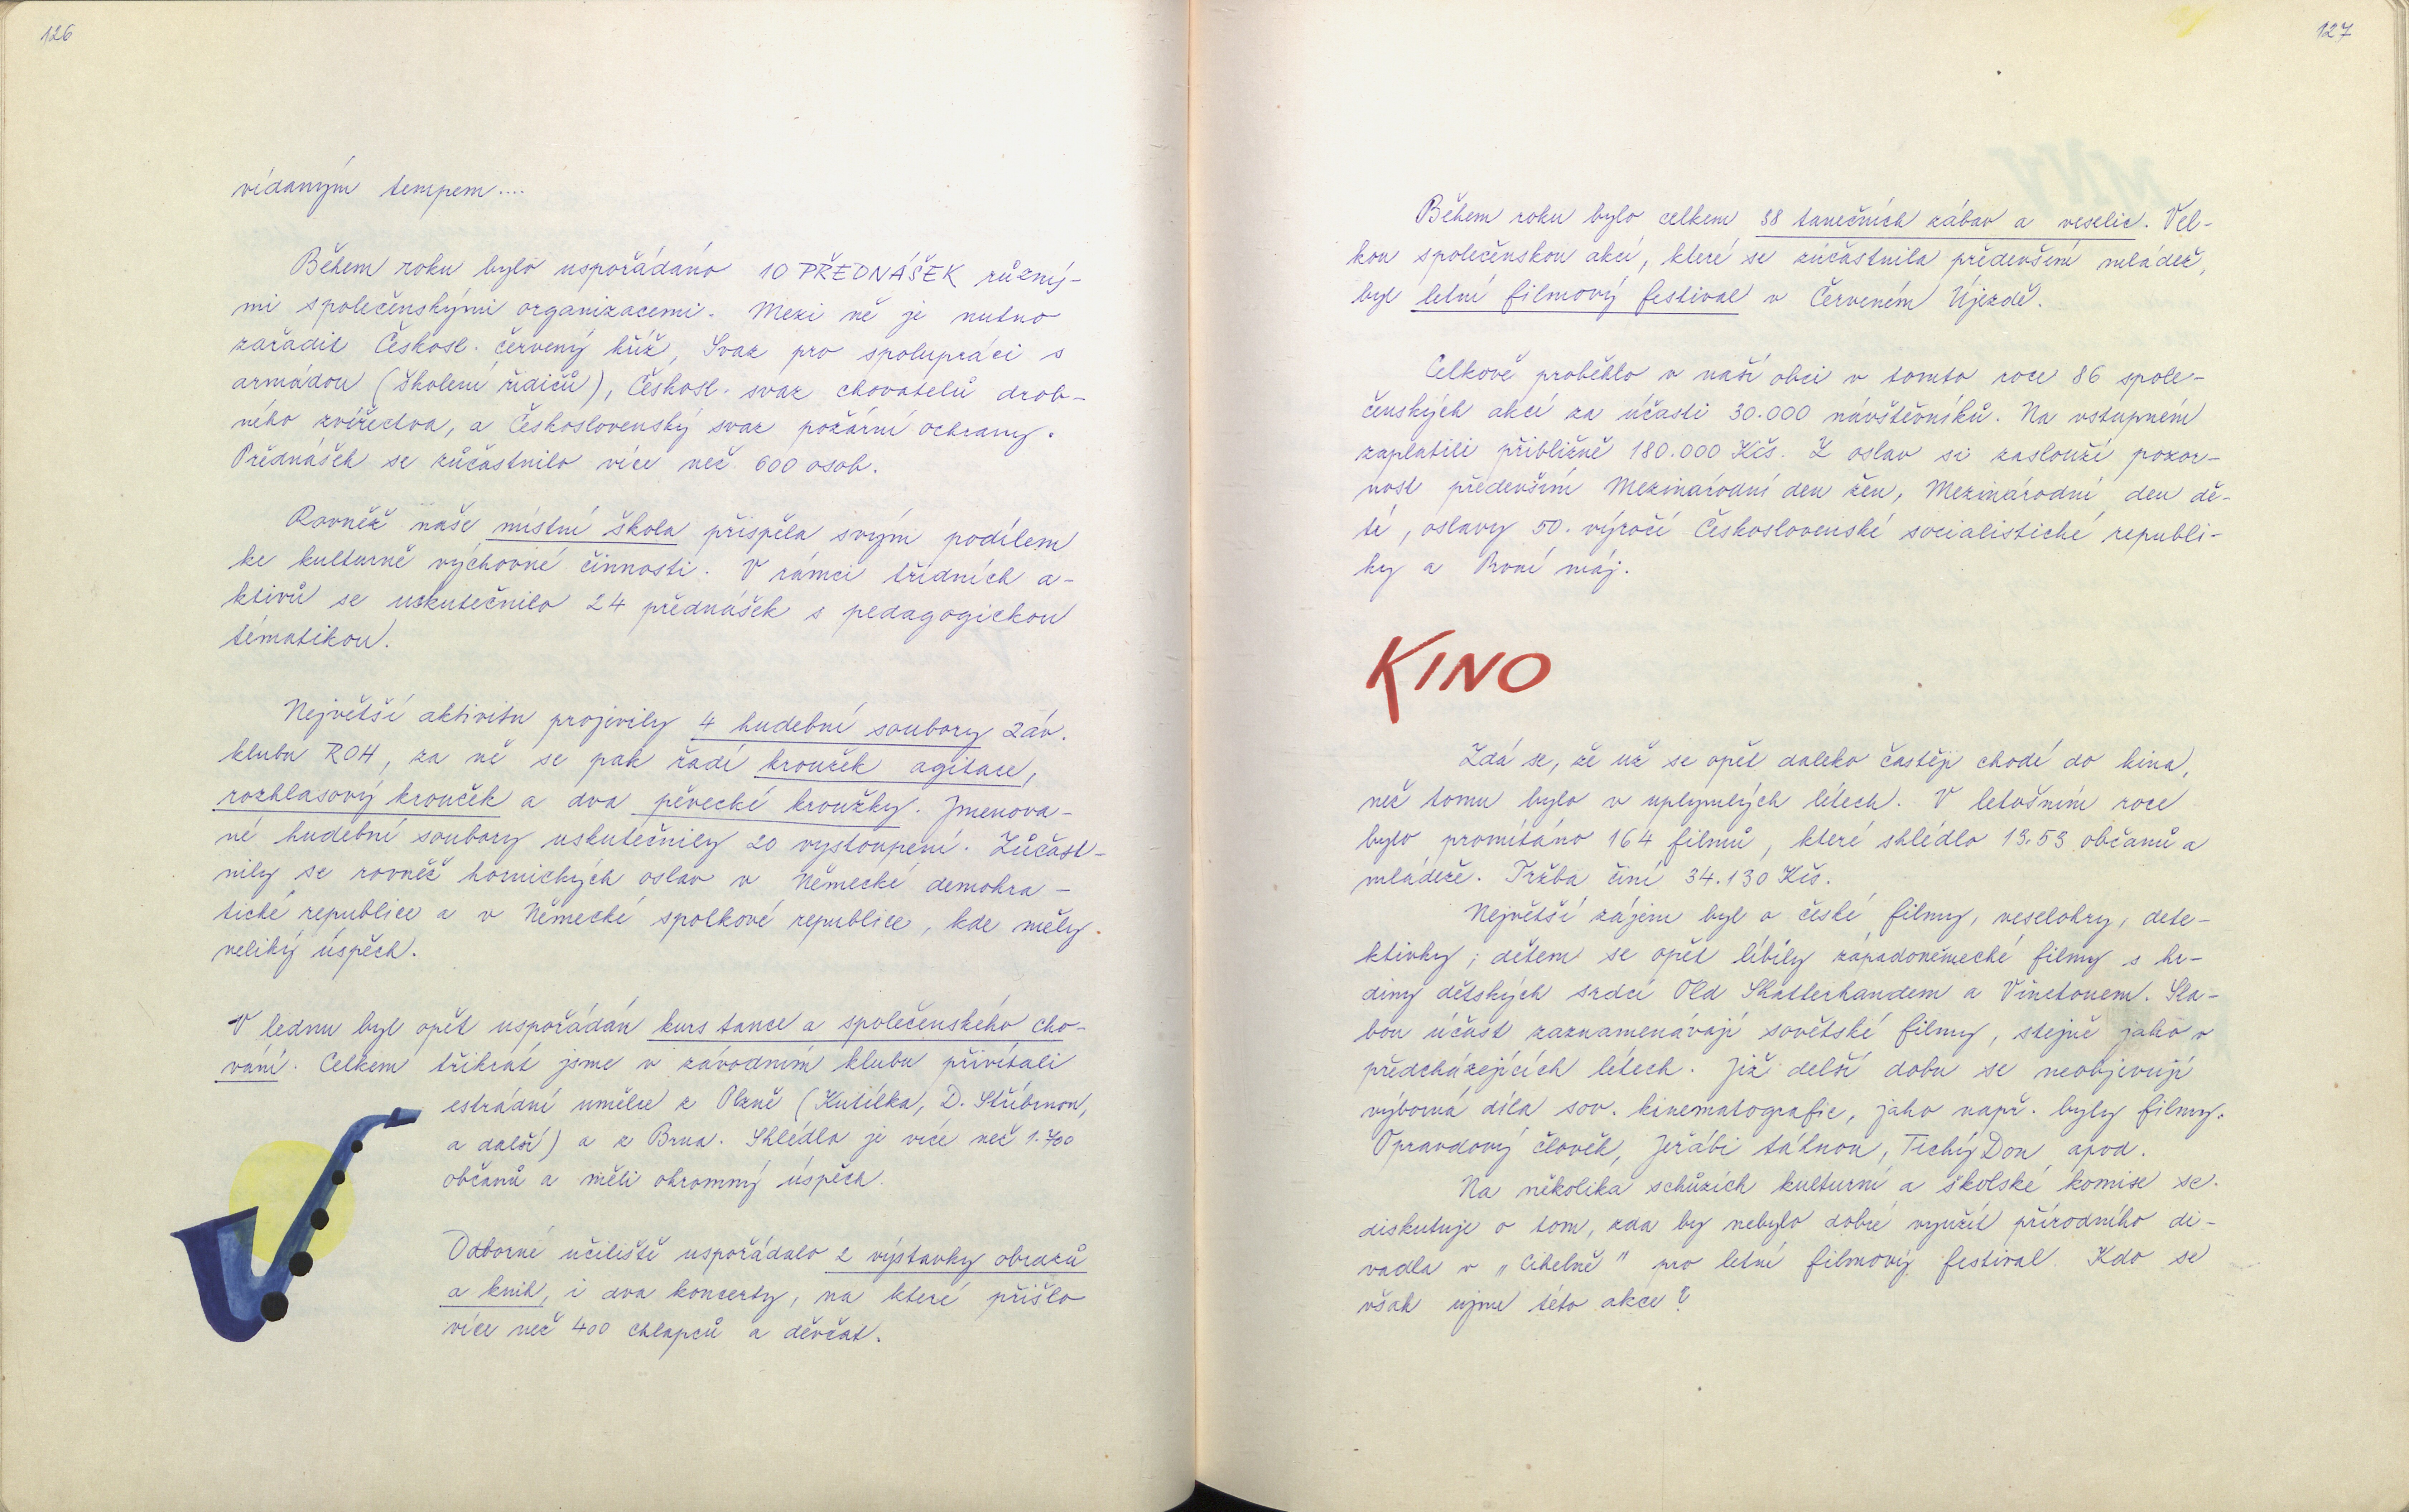 126
vídaným tempem....
Během roku bylo uspořádáno 10 PŘEDNÁŠEK různý-
mi společenskými organizacemi. Mezi ně je nutno
zařadit Českosl. červený kříž, Svaz pro spolupráci s
armádou (školení řidičů), Českosl. svaz chovatelů drob-
ného zvířectva, a Československý svaz požární ochrany.
Přednášek se zůčastnilo více než 600 osob.
Rovněž naše místní škola přispěla svým podílem
ke kulturně výchovné činnosti. V rámci třídních a-
ktivů se uskutečnilo 24 přednášek s pedagogickou
tématikou.
Největší aktivitu projevily 4 hudební soubory Záv.
klubu ROH, za ně se pak řadí kroužek agitace,
rozhlasový kroužek a dva pěvecké kroužky. Jmenova-
né hudební soubory uskutečnily 20 vystoupení. Zůčast-
nily se rovněž hornických oslav v Německé demokra-
tické republice a v Německé spolkové republice, kde měly
veliký úspěch.
V lednu byl opět uspořádán kurs tance a společenského cho-
vání. Celkem třikrát jsme v závodním klubu přivítali
estrádní umělce z Plzně (Kutilka, D. Stříbrnou,
a další) a z Brna. Shlédlo je více než 1.700
občanů a měli ohromný úspěch.
Odborné učiliště uspořádalo 2 výstavky obrazů
a knih, i dva koncerty, na které přišlo
více než 400 chlapců a děvčat.
127
Během roku bylo celkem 38 tanečních zábav a veselic. Vel-
kou společenskou akcí, které se zúčastnila především mládež,
byl letní filmový festival v Červeném Újezdě.
Celkově proběhlo v naší obci v tomto roce 86 spole-
čenských akcí za účasti 30.000 návštěvníků. Na vstupném
zaplatili přibližně 180.000 Kčs. Z oslav si zaslouží pozor-
nost především Mezinárodní den žen, Mezinárodní den dě-
tí, oslavy 50. výročí Československé socialistické republi-
ky a První máj.
KINO
Zdá se, že už se opět daleko častěji chodí do kina,
než tomu bylo v uplynulých létech. V letošním roce
bylo promítáno 164 filmů, které shlédlo 13.53 občanů a
mládeže. Tržba činí 34.130 Kčs.
Největší zájem byl o české filmy, veselohry, dete-
ktivky; dětem se opět líbily západoněmecké filmy s hr-
diny dětských srdcí Old Shatterhandem a Vinetouem. Sla-
bou účast zaznamenávají sovětské filmy, stejně jako v
předcházejících létech. Již delší dobu se neobjevují
výborná díla sov. kinematografie, jako např. byly filmy:
Opravdový člověk, Jeřábi táhnou, Tichý Don apod.
Na několika schůzích kulturní a školské komise se
diskutuje o tom, zda by nebylo dobré využít přírodního di-
vadla v "Cihelně" pro letní filmový festival. Kdo se
však ujme této akce?